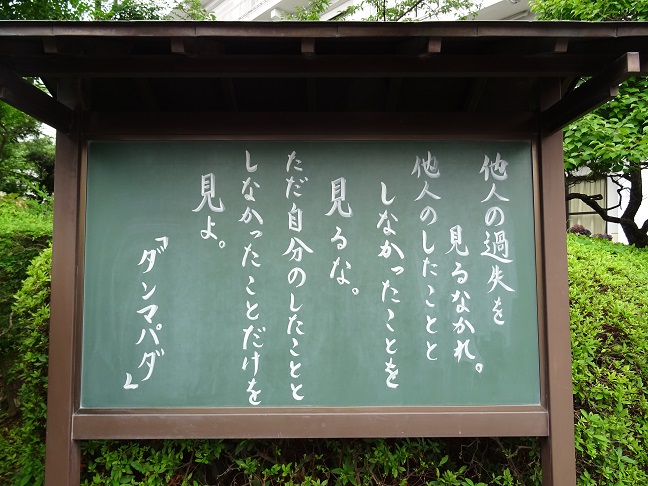 他人の過失を
見るなかれ。
他人のしたことと
しなかったことを
見るな。
ただ自分のしたことと
しなかったことだけを
見よ。
『ダンマパダ』